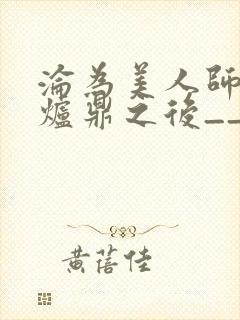 淪為美人師
爐鼎之後__
黃蓓佳